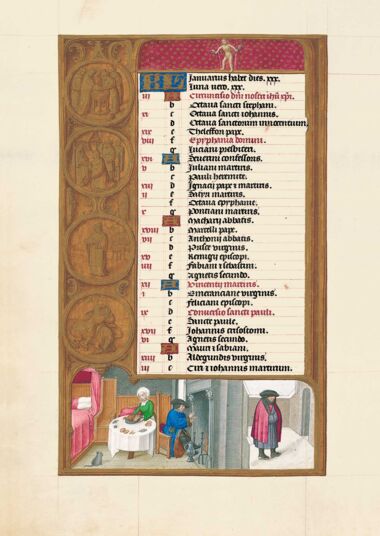 KL Januarius habet dies. xxx.
Luna vero. xxx.
iii A Circuncisio dñi nostri ihũ xpi.
b Octava sancti stephani.
xi c Octava sancti iohannis.
d Octava sanctorum innocentium
xix e Thelesfori pape.
viii f Epyphania domini.
g Luciani presbiteri.
xvi A Severini confessoris.
v b Juliani martiris.
c Pauli heremite.
xiii d Ignacij pape et martiris.
ii e Satiri martiris.
f Octava epyphanie.
x g Pontiani martiris.
A Macharij abbatis.
xviii b Marcelli pape.
vii c Anthonij abbatis.
d Prisce virginis.
xv e Remigij episcopi.
iiii f Fabiani et sebastiani.
g Agnetis secundo.
xii A Vincentij martiris.
i b Emerenciane virginis.
c Feliciani episcopi.
ix d Conversio sancti pauli.
e Sancte paule.
xvii f Johannis crisostomi.
vi g Agnetis secundo.
A Mauri et sabiani.
xiiii b Aldegundis virginis.
iii c Ciri et iohannis martirum.